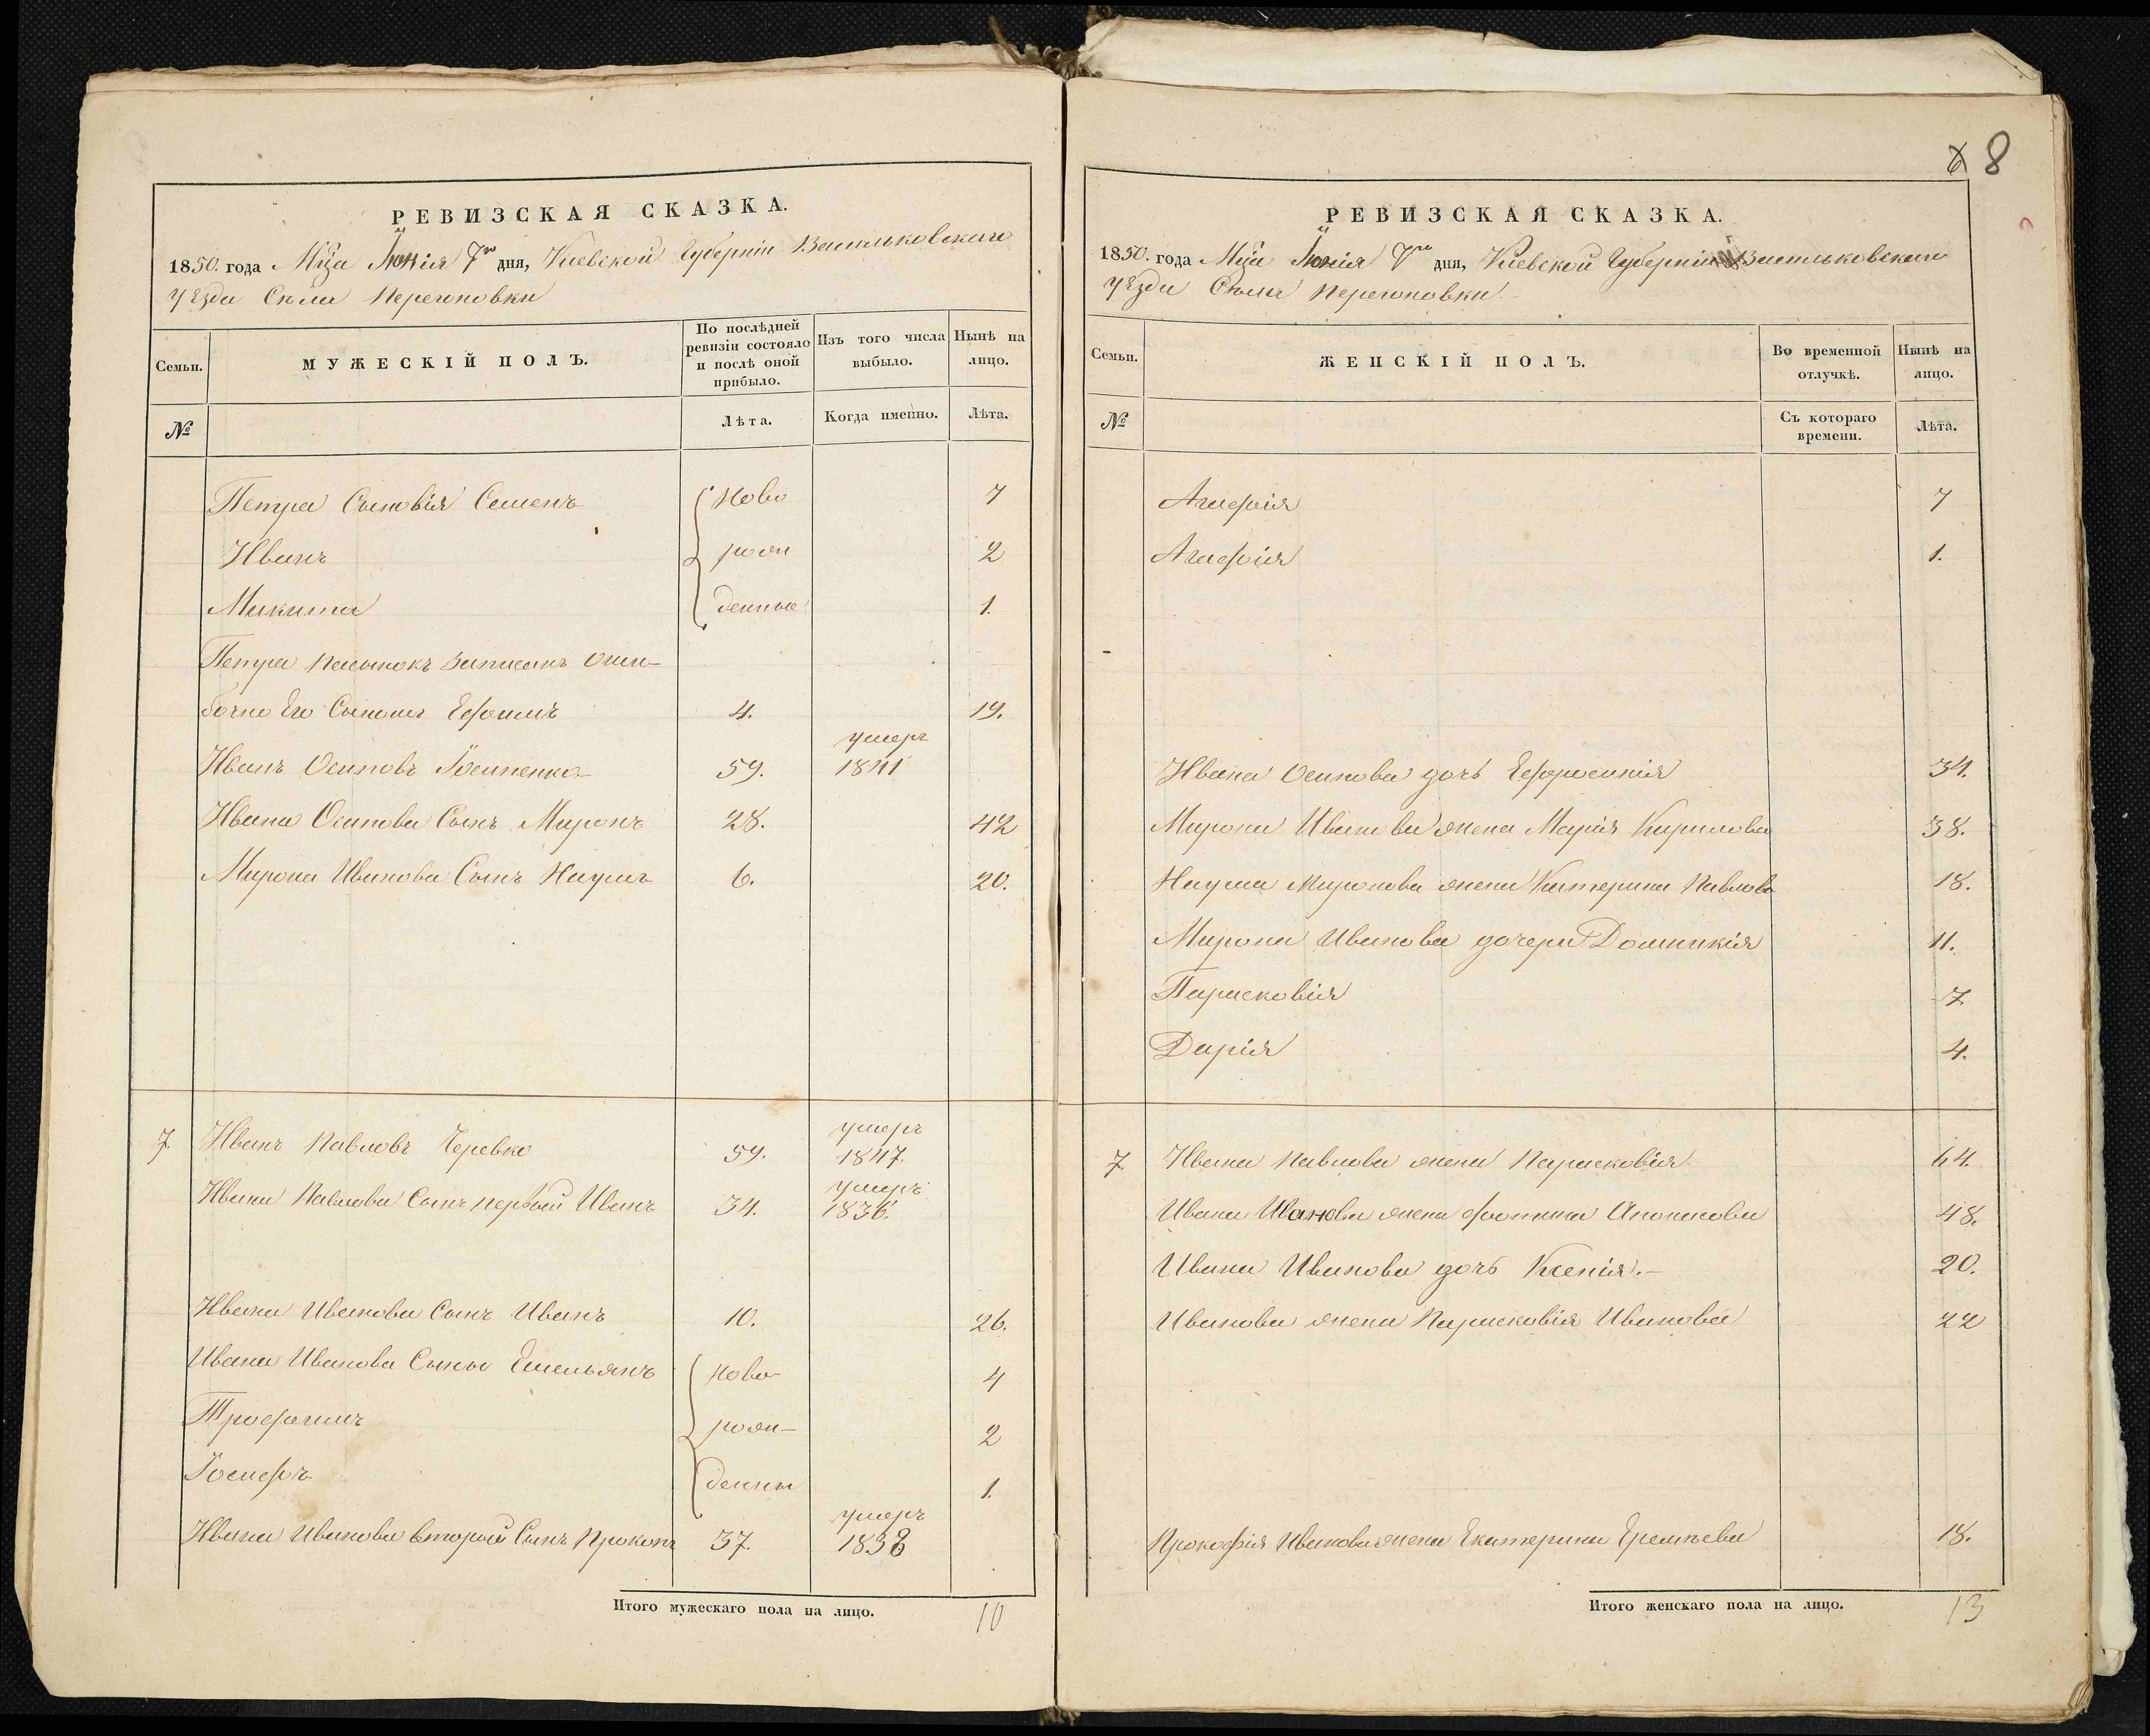 РЕВИЗСКАЯ СКАЗКА.
1850. года Мца Іюнія 7го дня, Киевской Губерніи Васильковскаго
уѣзда Села Перегоновки
Семьи.
МУЖЕСКІЙ ПОЛЪ.
По послѣдней ревизіи состояло и послѣ оной прибыло.
Изъ того числа выбыло.
Нынѣ на лицо.
№
Лѣта.
Когда именно.
Лѣта.
Петра Сыновія Семенъ Ново 7
Иванъ рож 2
Микита денные 1.
Петра пасынокъ записанъ оши-
бочно Его Сыномъ Ефимъ 4. 19.
Иванъ Осиповъ 59. умеръ 1841
Ивана Осипова Сынъ Миронъ 28. 42
Мирона Иванова Сынъ Наумъ 6. 20.
7 Иванъ Павловъ Черевко 59. умеръ 1847.
Ивана Павлова Сынъ первый Иванъ 34. умеръ 1836.
Ивана Иванова Сынъ Иванъ 10. 26.
Ивана Иванова Сыны Емельянъ Ново- 4
Трофимъ рож- 2
Іосифъ денны 1.
Ивана Иванова второй Сынъ Прокопъ 37. умеръ 1838
Итого мужескаго пола на лицо. 10
6 8
РЕВИЗСКАЯ СКАЗКА.
1850. года Мца Іюнія 7го дня, Киевской Губерніи Васильковскаго
уѣзда Села Перегоновки.
Семьи.
ЖЕНСКІЙ ПОЛЪ.
Во временной отлучкѣ.
Нынѣ на лицо.
№
Съ котораго времени.
Лѣта.
Агафія 7
Агафія 1.
Ивана Осипова дочь Ефросинія 34.
Мирона Иванова жена Марія Кирилова 38.
Наума Миронова жена Катерина Павлова 18.
Мирона Иванова дочери Домникія 11.
Парасковія 7.
Дарія 4.
7 Ивана Павлова жена Парасковія 64.
Ивана Иванова жена 48.
Ивана Иванова дочь Ксенія.- 20.
Иванова жена Парасковія Иванова 22
Прокофія Иванова жена Екатерина Еремѣева 18.
Итого женскаго пола на лицо. 13